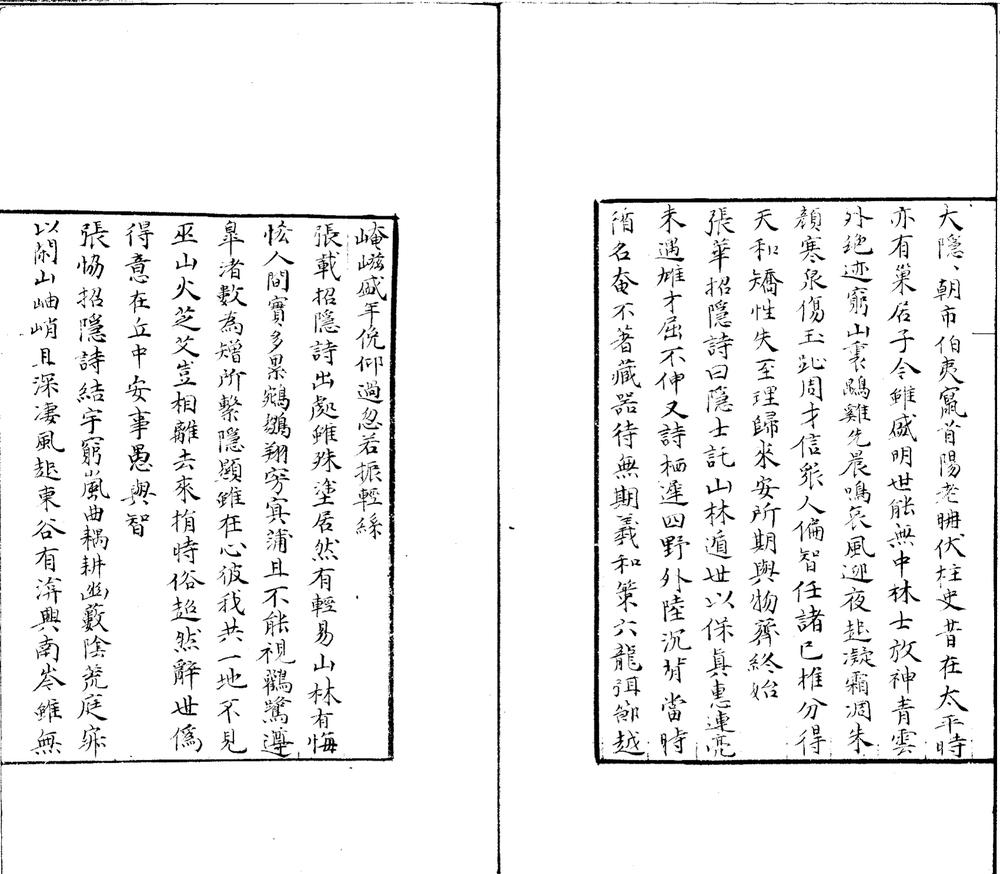 大隱、朝市伯夷竄首陽老聃伏柱史昔在太平時
亦有巢居子今雖盛明世能無中林士放神青雲
外絶迹窮山裏鵾雞先晨鳴哀風迎夜起凝霜凋朱
顏寒泉傷玉趾周才信衆人偏智任諸已推分得
天和矯性失至理歸來安所期與物齊終始
張華招隱詩曰隱士託山林遁世以保真連惠亮
未遇雄才屈不伸又詩栖遲四野外陸沉背當時
循名奄不著藏器待無期羲和策六龍弭節越
崦嵫盛年俛仰過忽若振輕絲
張載招隱詩出處雖殊塗居然有輕易山林有悔
恡人間實多累鵷鶵翔穷冥蒲且不能視鸛鷺遵
臯渚數為矰所繫隱顯雖在心彼我共一地不見
巫山火芝艾豈相離去來捐時俗超然辭世偽
得意在丘中安事愚與智
張恊招隱詩結宇窮嵐曲耦耕幽藪陰荒庭寂
以閑山岫峭且深凄風起東谷有渰興南岑雖無